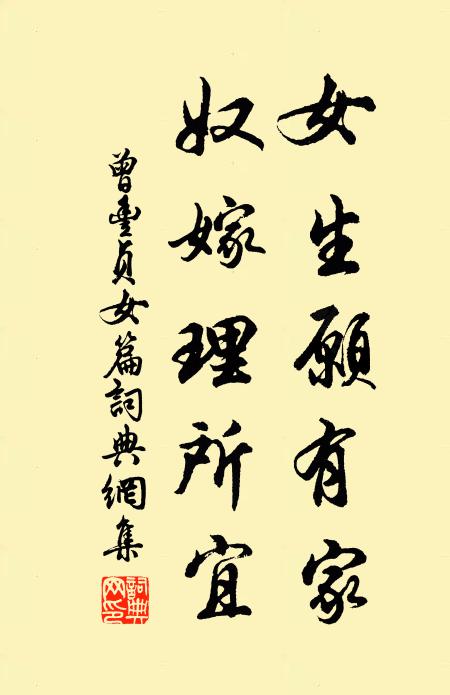 女生願有家
奴嫁理所宜
曾豐貞女篇詞典網集
詞典网印